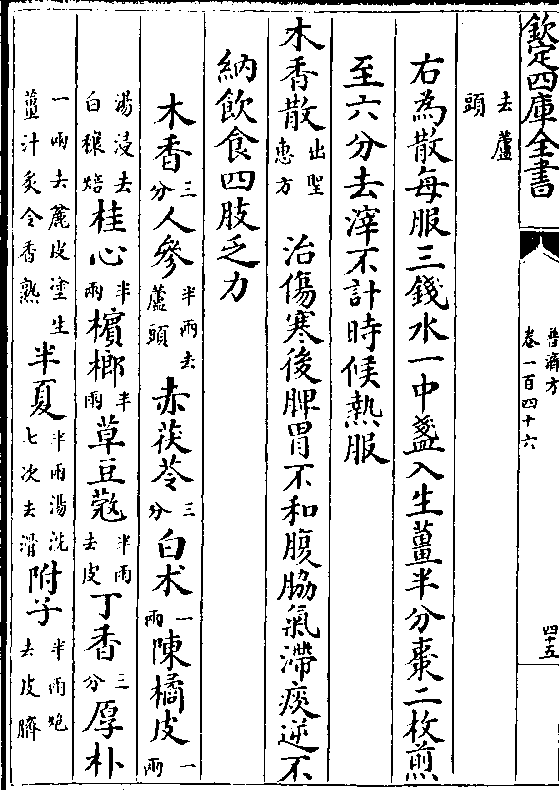 欽定四庫全書
普濟方
卷一百四十六
四十五
去蘆
頭
右為散每服三錢水一中盞入生薑半分棗二枚煎
至六分去滓不計時候熱服
木香散出聖惠方 治傷寒後脾胃不和腹脇氣滯痰逆不
納飲食四肢乏力
木香三分人參半兩去蘆頭赤茯苓三分白术一兩陳橘皮一兩
湯浸去白穰焙桂心半兩檳榔半兩草豆蔻半兩去皮丁香三分厚朴
一兩去麄皮塗生薑汁炙令香熟半夏半兩湯洗七次去滑附子半兩炮去皮臍